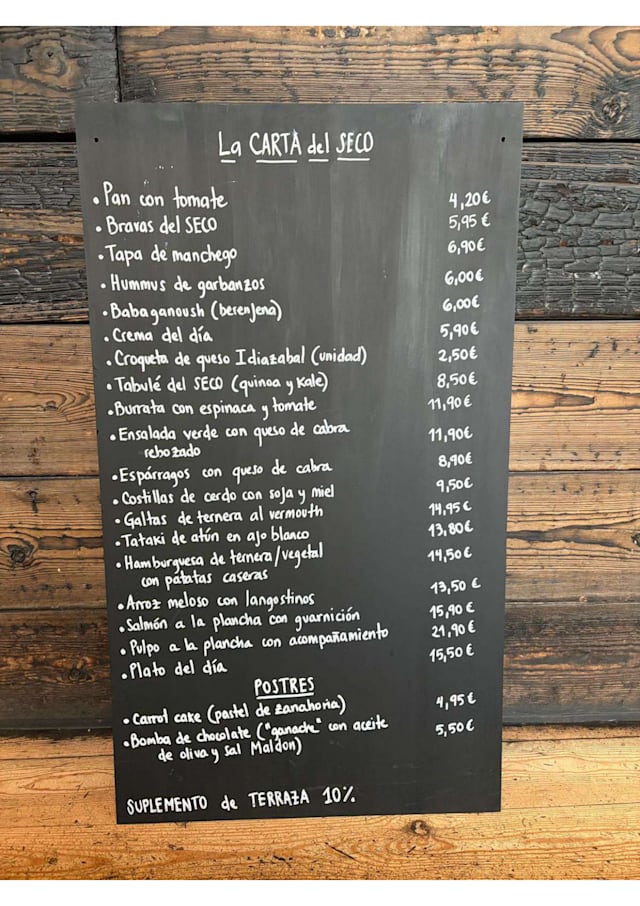 La CARTA del SECO
• Pan con tomate 4,20€
• Bravas del SECO 5,95€
• Tapa de manchego 6,90€
• Hummus de garbanzos 6,00€
• Baba ganoush (berenjena) 6,00€
• Crema del día 5,90€
• Croqueta de queso Idiazabal (unidad) 2,50€
• Tabulé del SECO (quinoa y kale) 8,50€
• Burrata con espinaca y tomate 11,90€
• Ensalada verde con queso de cabra 11,90€
rebozado
• Espárragos con queso de cabra 8,90€
• Costillas de cerdo con soja y miel 9,50€
• Galtas de ternera al vermouth 14,95€
• Tataki de atún en ajo blanco 13,80€
• Hamburguesa de ternera/vegetal 14,50€
con patatas caseras
• Arroz meloso con langostinos 13,50€
• Salmón a la plancha con guarnición 15,90€
• Pulpo a la plancha con acompañamiento 21,90€
• Plato del día 15,50€
POSTRES
• Carrot cake (pastel de zanahoria) 4,95€
• Bomba de chocolate ("ganache" con aceite 5,50€
de oliva y sal Maldon)
SUPLEMENTO de TERRAZA 10%